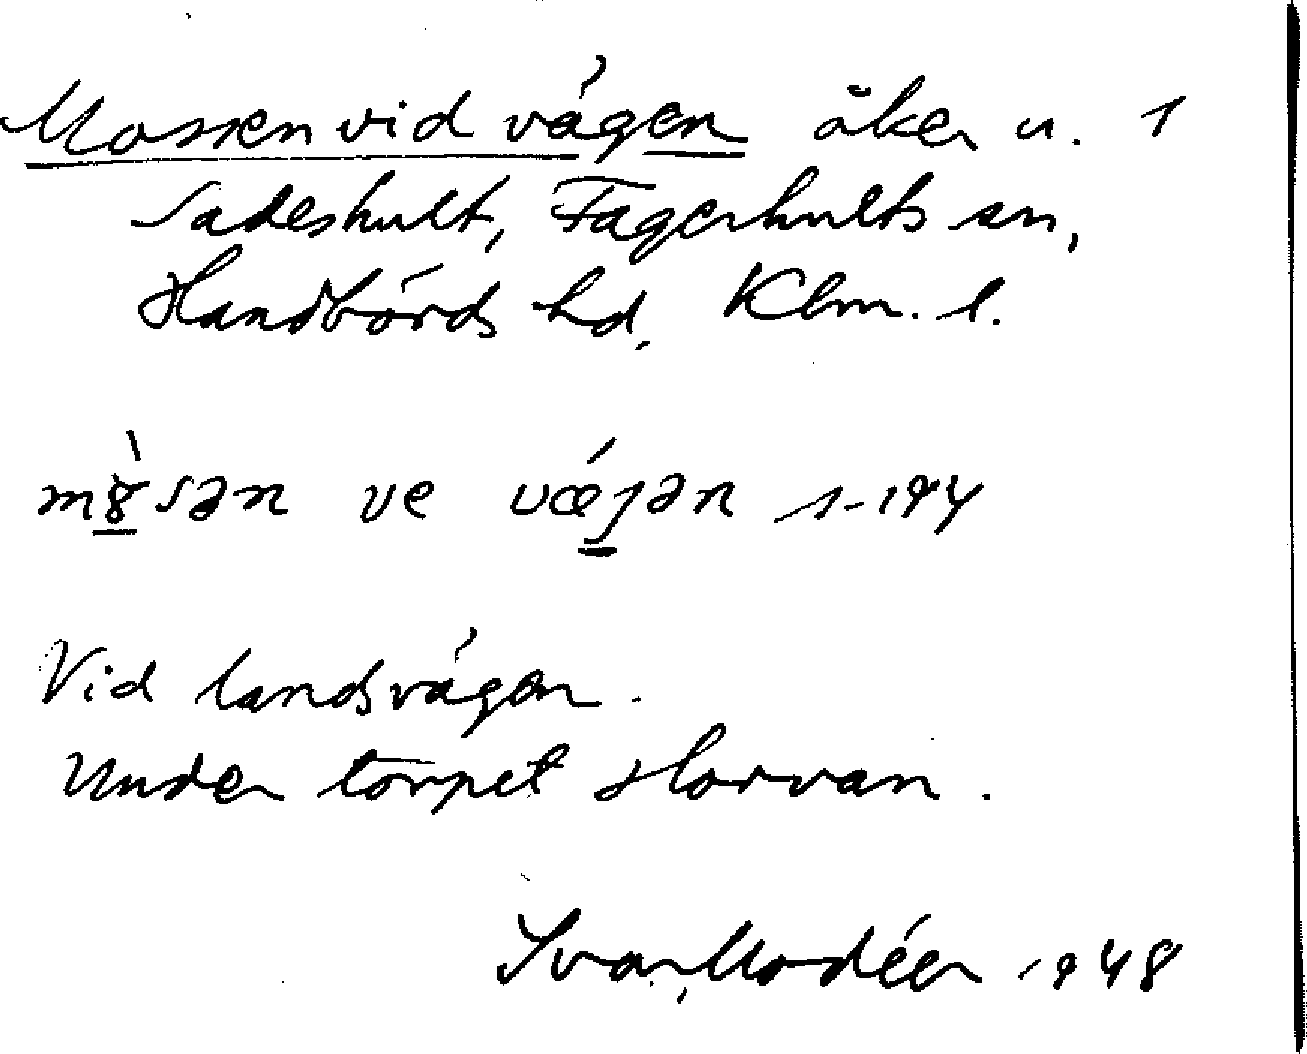 Mossen vid vägen åker u. 1
Sadeshult, Fagerhults sn,
Handbörds hd, Klm. l.
mȣ̀sən ve vǽjən 1-194
Vid landsvägen.
Under torpet Horvan.
Ivar Modéer 1948